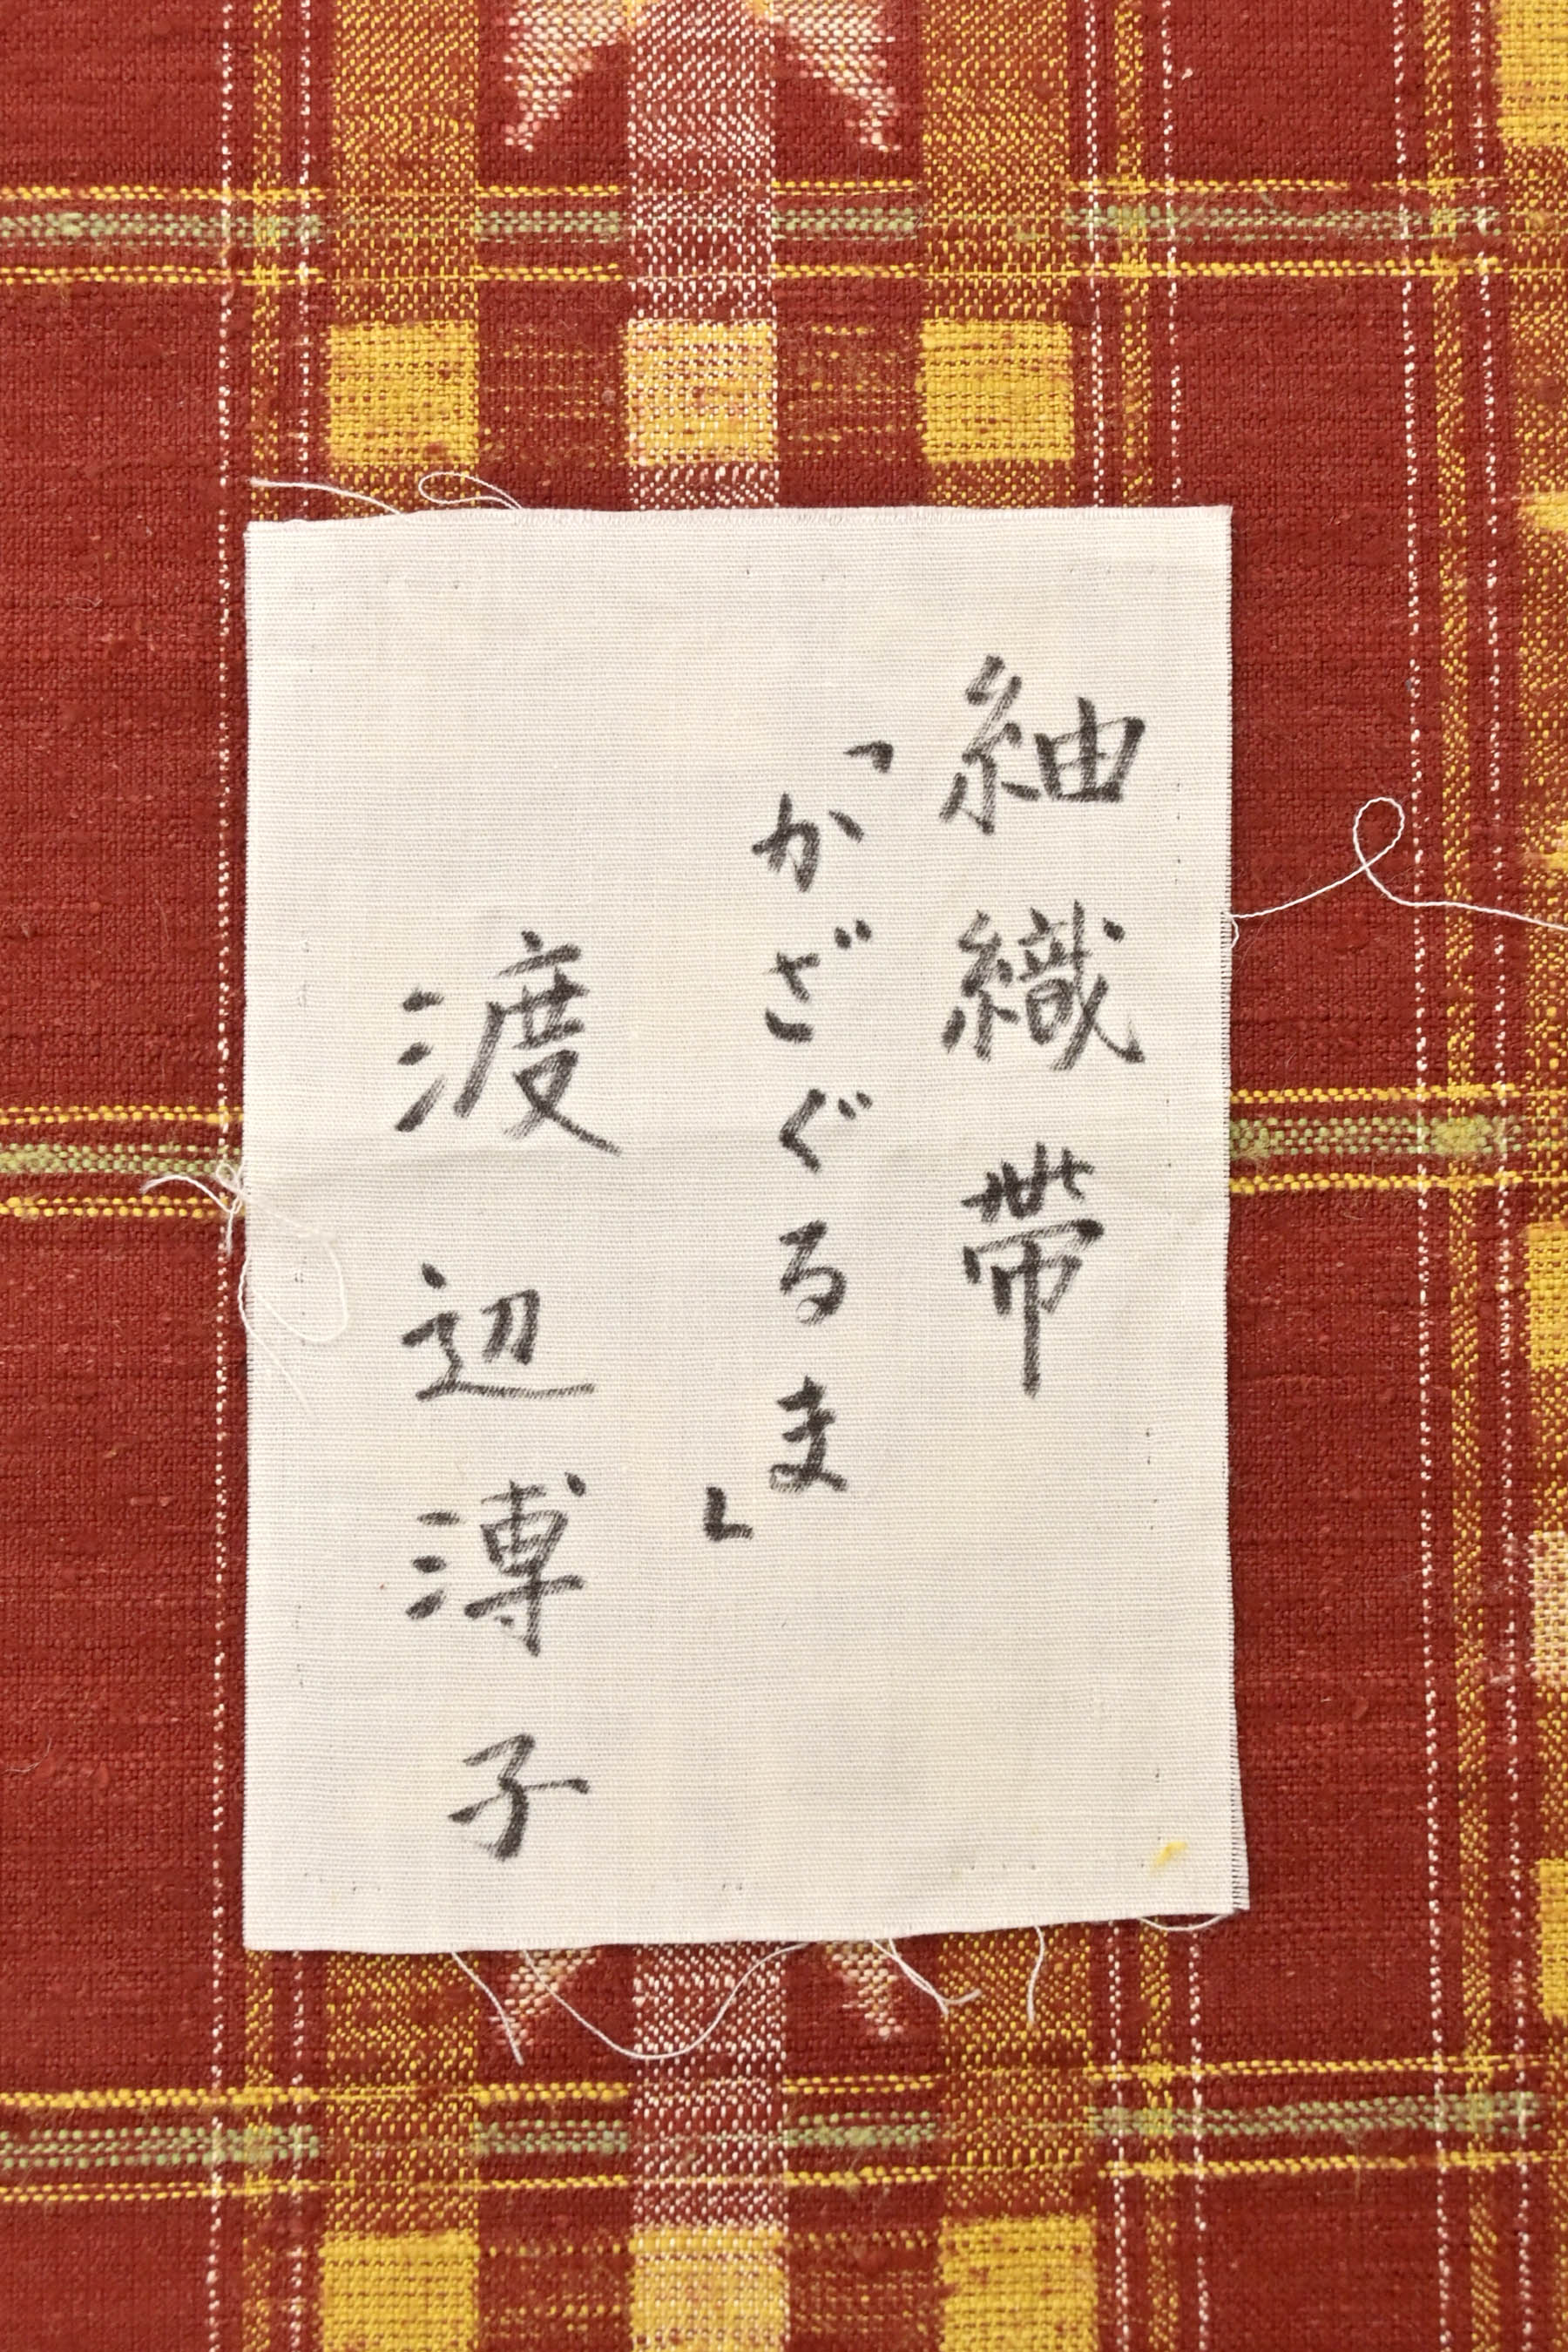 紬織帯
「かざぐるま」
渡辺溥子